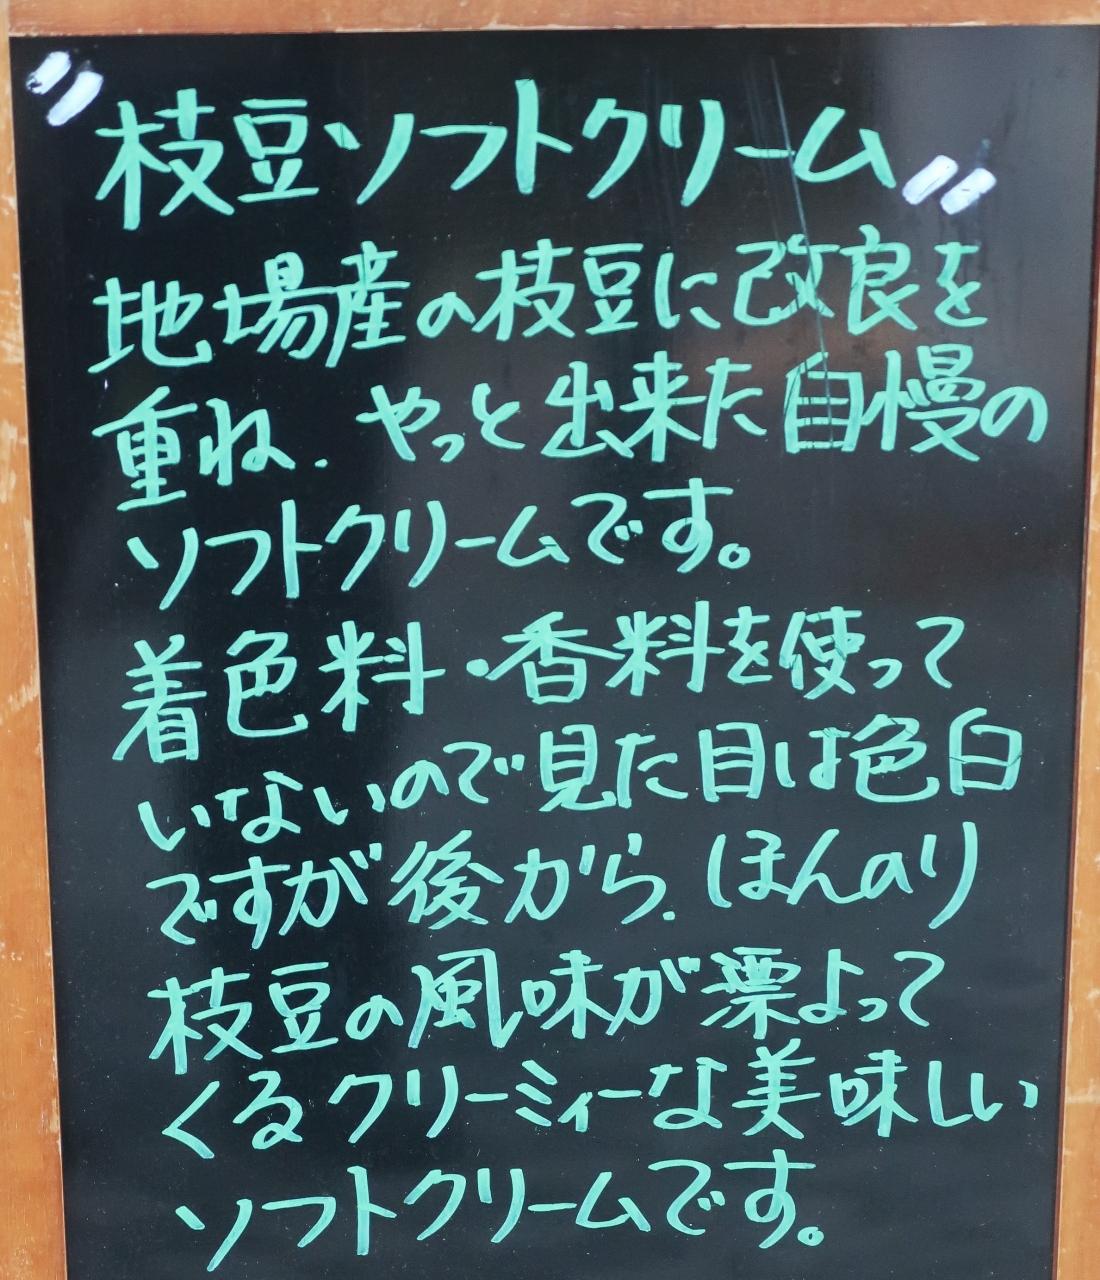 〃枝豆ソフトクリーム〃
地場産の枝豆に改良を
重ね、やっと出来た自慢の
ソフトクリームです。
着色料・香料を使って
いないので見た目は色白
ですが後から、ほんのり
枝豆の風味が漂よって
くるクリーミィーな美味しい
ソフトクリームです。